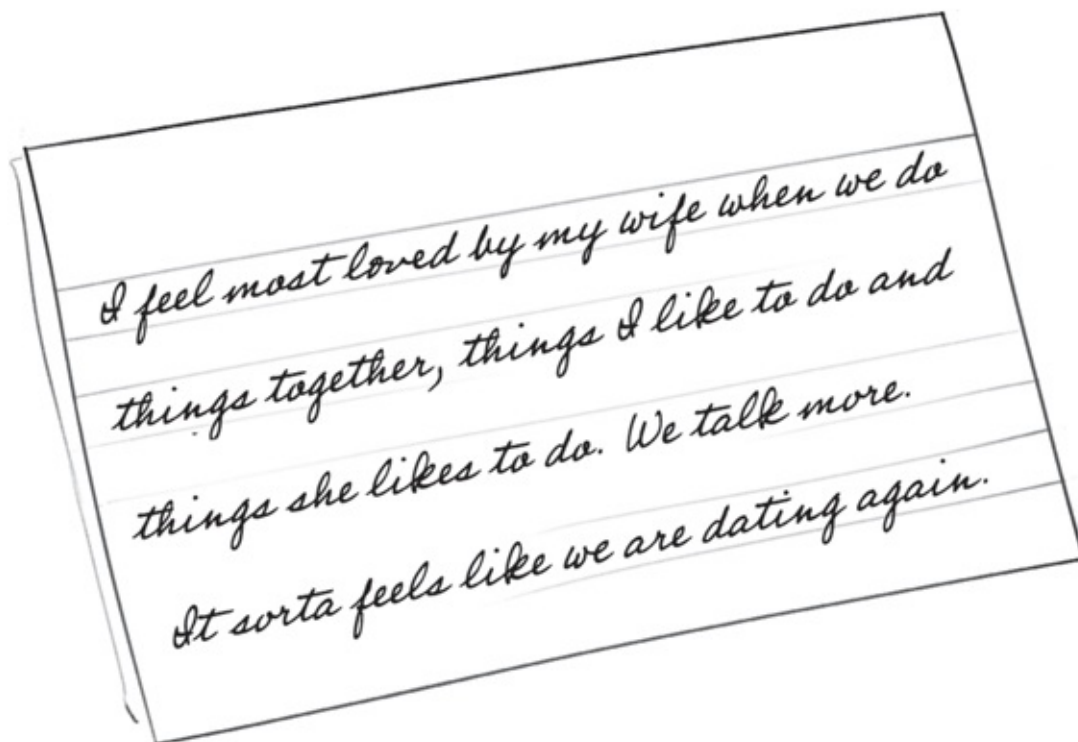 I feel most loved by my wife when we do
things together, things I like to do and
things she likes to do. We talk more.
It sorta feels like we are dating again.